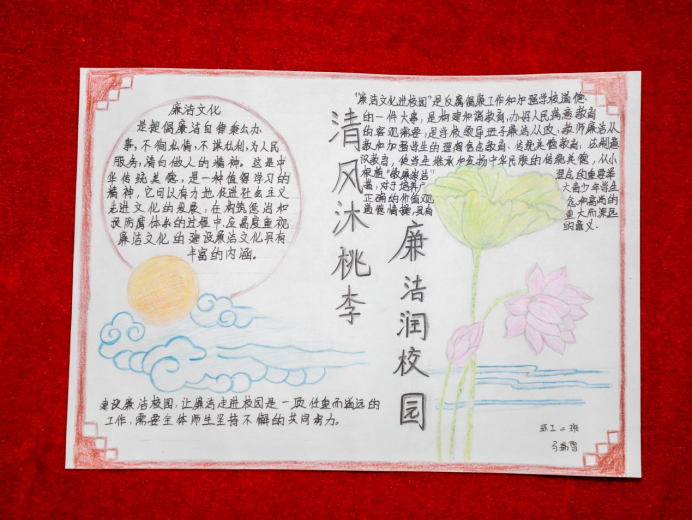 廉洁文化
是把倡廉洁自律秉公办
事,不徇私情,不谋私利,为人民
服务,清白做人的精神。这是中
华传统美德,是一种值得学习的
精神,它可以有力地促进社会主义
先进文化的发展,在构筑惩治和
预防腐体系的过程中,应高度重视
廉洁文化的建设廉洁文化具有
丰富的内涵。
清风沐桃李
廉洁润校园
"廉洁文化进校园"是反腐倡廉工作和加强学校道德
的一件大事,是构建和谐教育,办好人民满意教育
的客观需要,是当被领导班子廉洁从政,教师廉洁从
教和加强学生的理想信念教育、传统美德教育、法制意
识教育,使学生继承和发扬中华民族的传统美德,从小
正确的价值观
念和高尚的
道德情操,具有
重大而深远
的意义.
建设廉洁校园,让廉洁走进校园是一项任重而道远的
工作,需要全体师生坚持不懈的共同努力。
二班